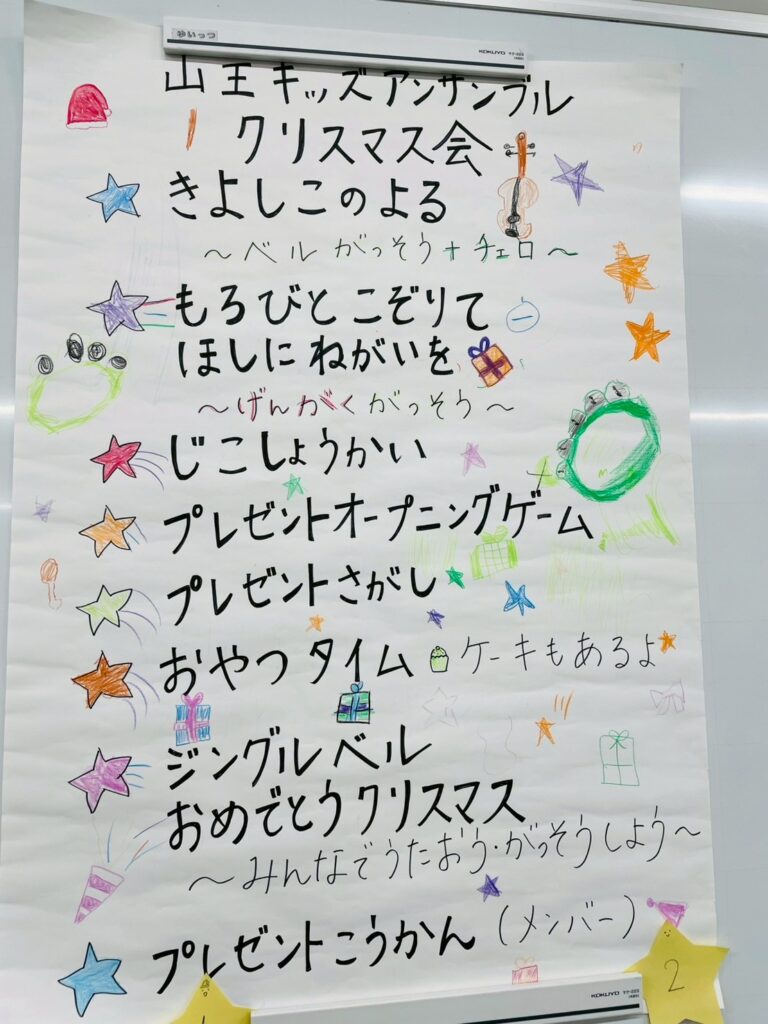 ゆいっつ
KOKUYO
山王キッズアンサンブル
クリスマス会
きよしこのよる
～ベルがっそう+チェロ～
もろびとこぞりて
ほしにねがいを
～げんがくがっそう～
じこしょうかい
プレゼントオープニングゲーム
プレゼントさがし
おやつタイム ケーキもあるよ
ジングルベル
おめでとうクリスマス
～みんなでうたおう・がっそうしよう～
プレゼントこうかん(メンバー)
KOKUYO
2